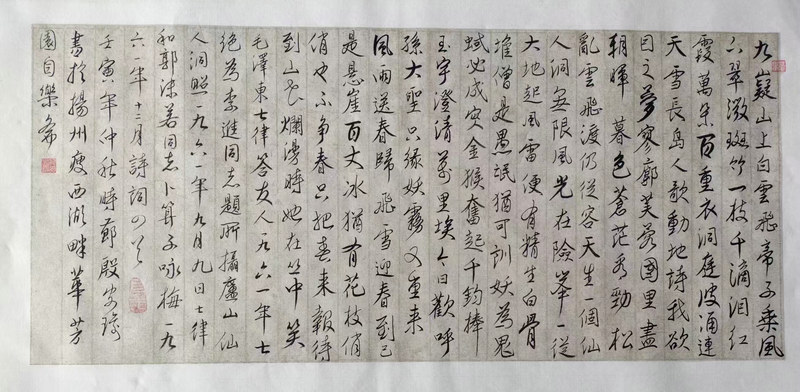 九嶷山上白雲飛帝子乘風
下翠微斑竹一枝千滴泪紅
霞萬朵百重衣洞庭波涌連
天雪長島人歌動地詩我欲
因之夢寥廓芙蓉國里盡
朝暉暮色蒼茫看勁松
亂雲飛渡仍從容天生一個仙
人洞無限風光在險峰一從
大地起風雷便有精生白骨
堆僧是愚氓猶可訓妖為鬼
蜮必成災金猴奮起千鈞棒
玉宇澄清萬里埃今日歡呼
孫大聖只緣妖霧又重來
風雨送春歸飛雪迎春到已
是懸崖百丈冰猶有花枝俏
俏也不爭春只把春來報待
到山花爛漫時她在丛中笑
毛澤東七律答友人一九六一年七
絕為李進同志題所攝廬山仙
人洞照一九六一年九月九日七律
和郭沫若同志卜算子咏梅一九
六一年十二月詩詞四首
壬寅年仲秋時節殷安
書於揚州瘦西湖畔華芳
園自樂齋